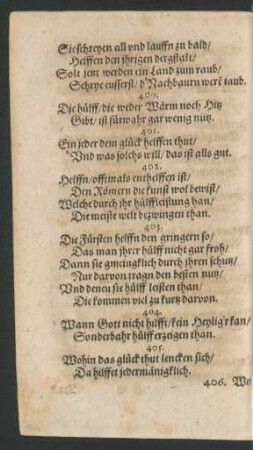 Sie schreyen all vnd lauffn zu bald/
Helffen den jhrigen dergstalt/
Solt jetzt werden ein Land zum raub/
Schrye eusserst/ d' Nachbaurn werē taub.
400.
Die hülff/ die weder Wärm noch Hitz
Gibt/ ist fürwahr gar wenig nütz.
401.
Ein jeder dem glück helffen thut/
Vnd was solchs will/ das ist alls gut.
402.
Helffn/ offtmals enthelffen ist/
Den Römern die kunst wol bewist/
Welche durch jhr hülffleistung han/
Die meiste welt bezwingen than.
403.
Die Fürsten helffn den gringern so/
Das man jhrer hülff nicht gar froh/
Dann sie gmeingklich durch jhren schutz/
Nur darvon tragn den besten nutz/
Vnd denen sie hülff leisten than/
Die kommen viel zu kurtz darvon.
404.
Wann Gott nicht hülfft/ kein Heylig'r kan/
Sonderbahr hülff erzeigen than.
405.
Wohin das glück thut lencken sich/
Da hilffet jedermänigklich.
406. Wo